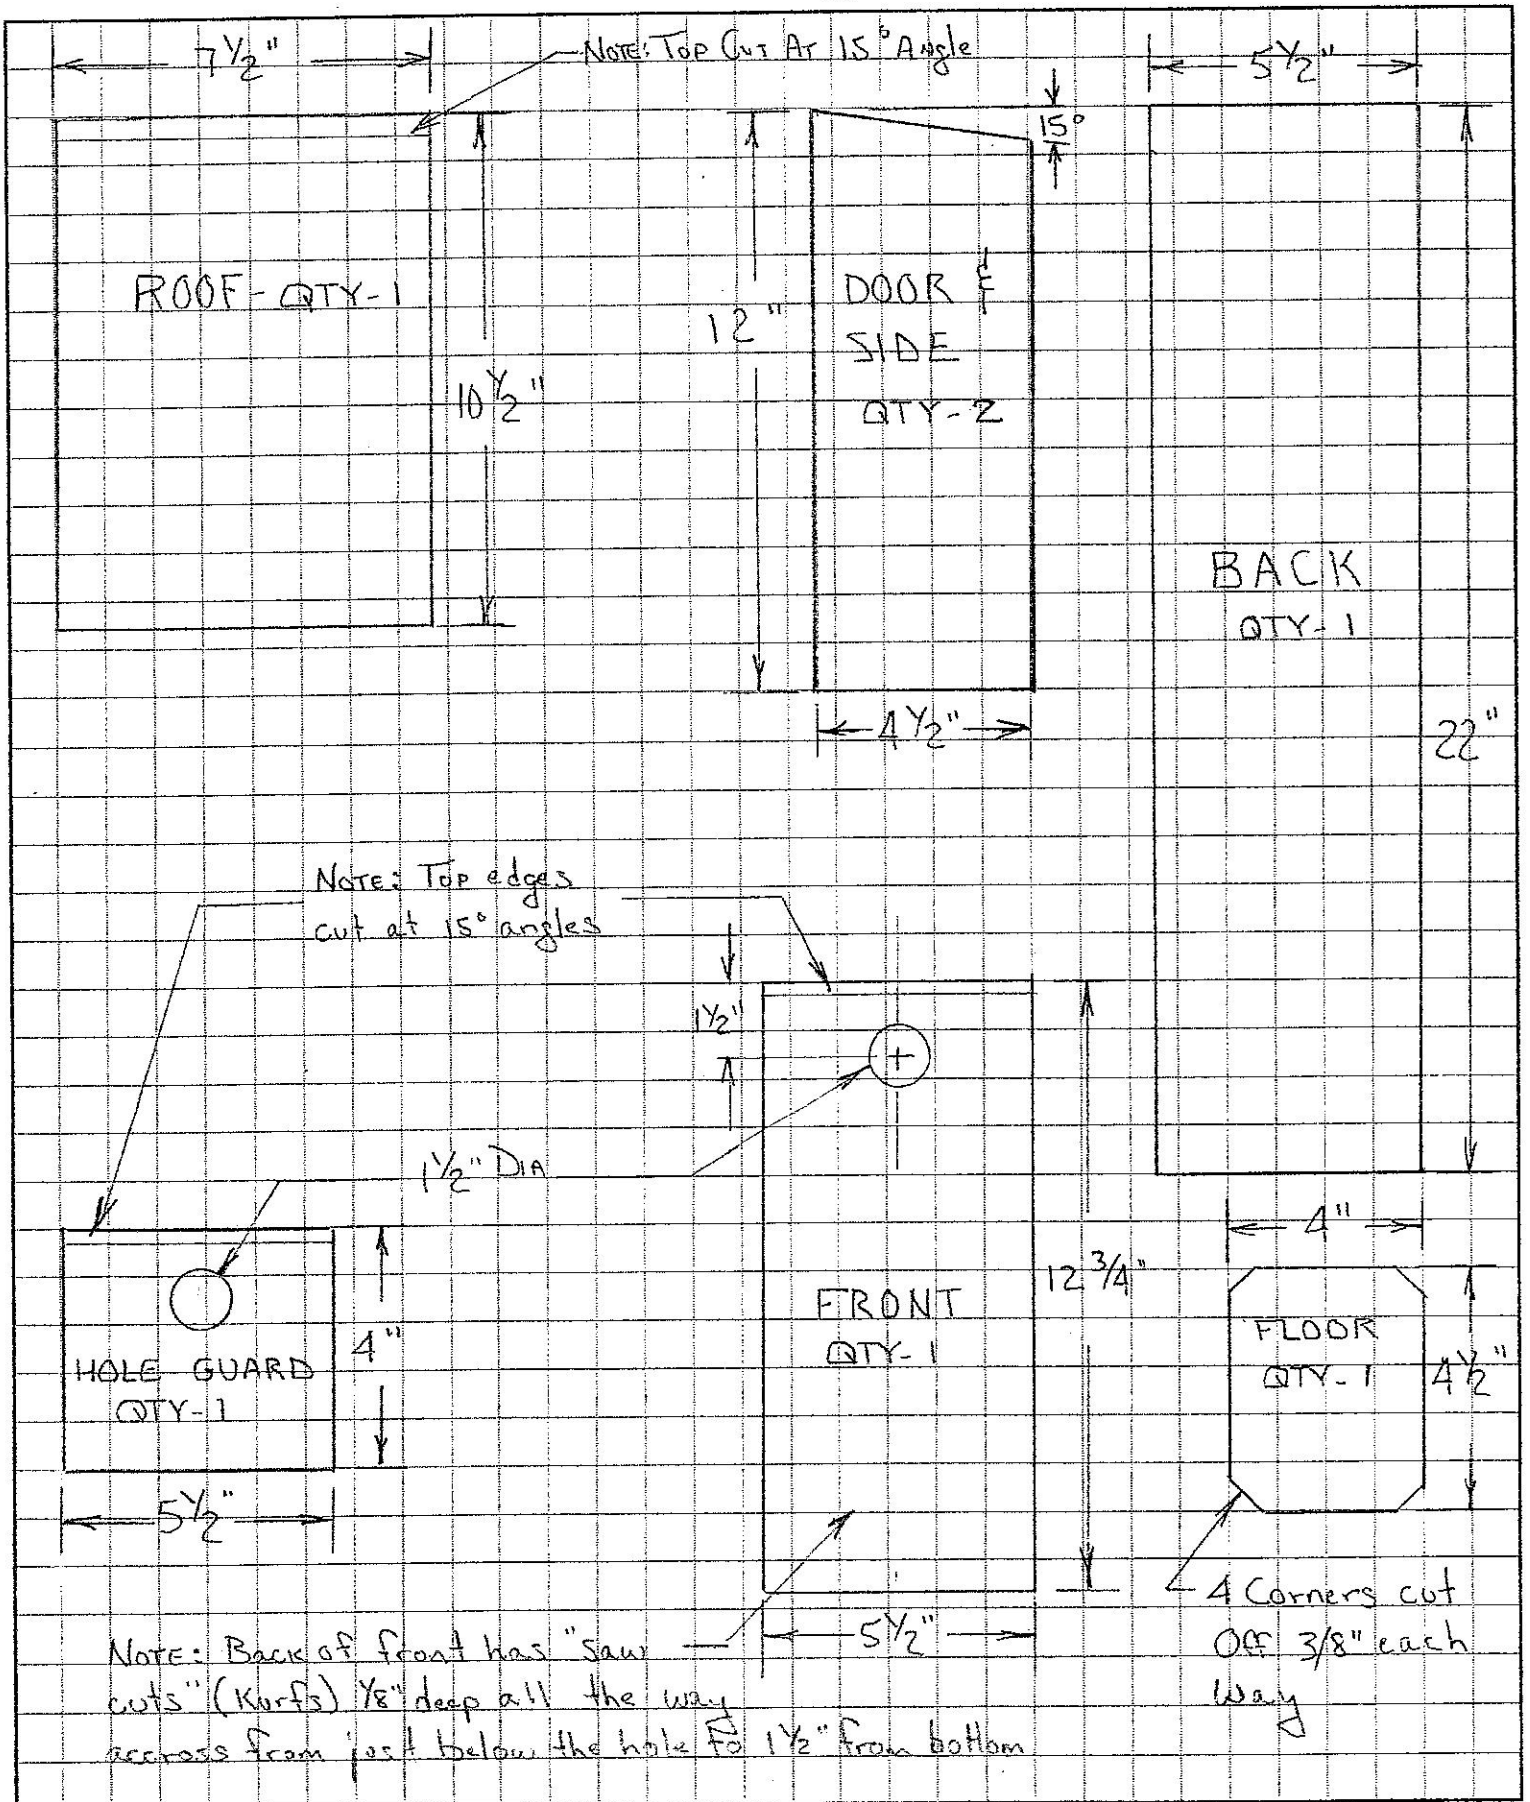 7 1/2"
NOTE: Top Cut At 15° Angle
5 1/2"
15°
ROOF - QTY-1
10 1/2"
12"
DOOR &
SIDE
QTY-2
4 1/2"
BACK
QTY-1
22"
NOTE: Top edges
cut at 15° angles
1 1/2"
1 1/2" DIA
HOLE GUARD
QTY-1
4"
5 1/2"
FRONT
QTY-1
12 3/4"
5 1/2"
4"
FLOOR
QTY-1
4 1/2"
4 Corners cut
Off 3/8" each
Way
NOTE: Back of front has "saw
cuts" (Kurfs) 1/8" deep all the way
accross from just below the hole to 1 1/2" from bottom